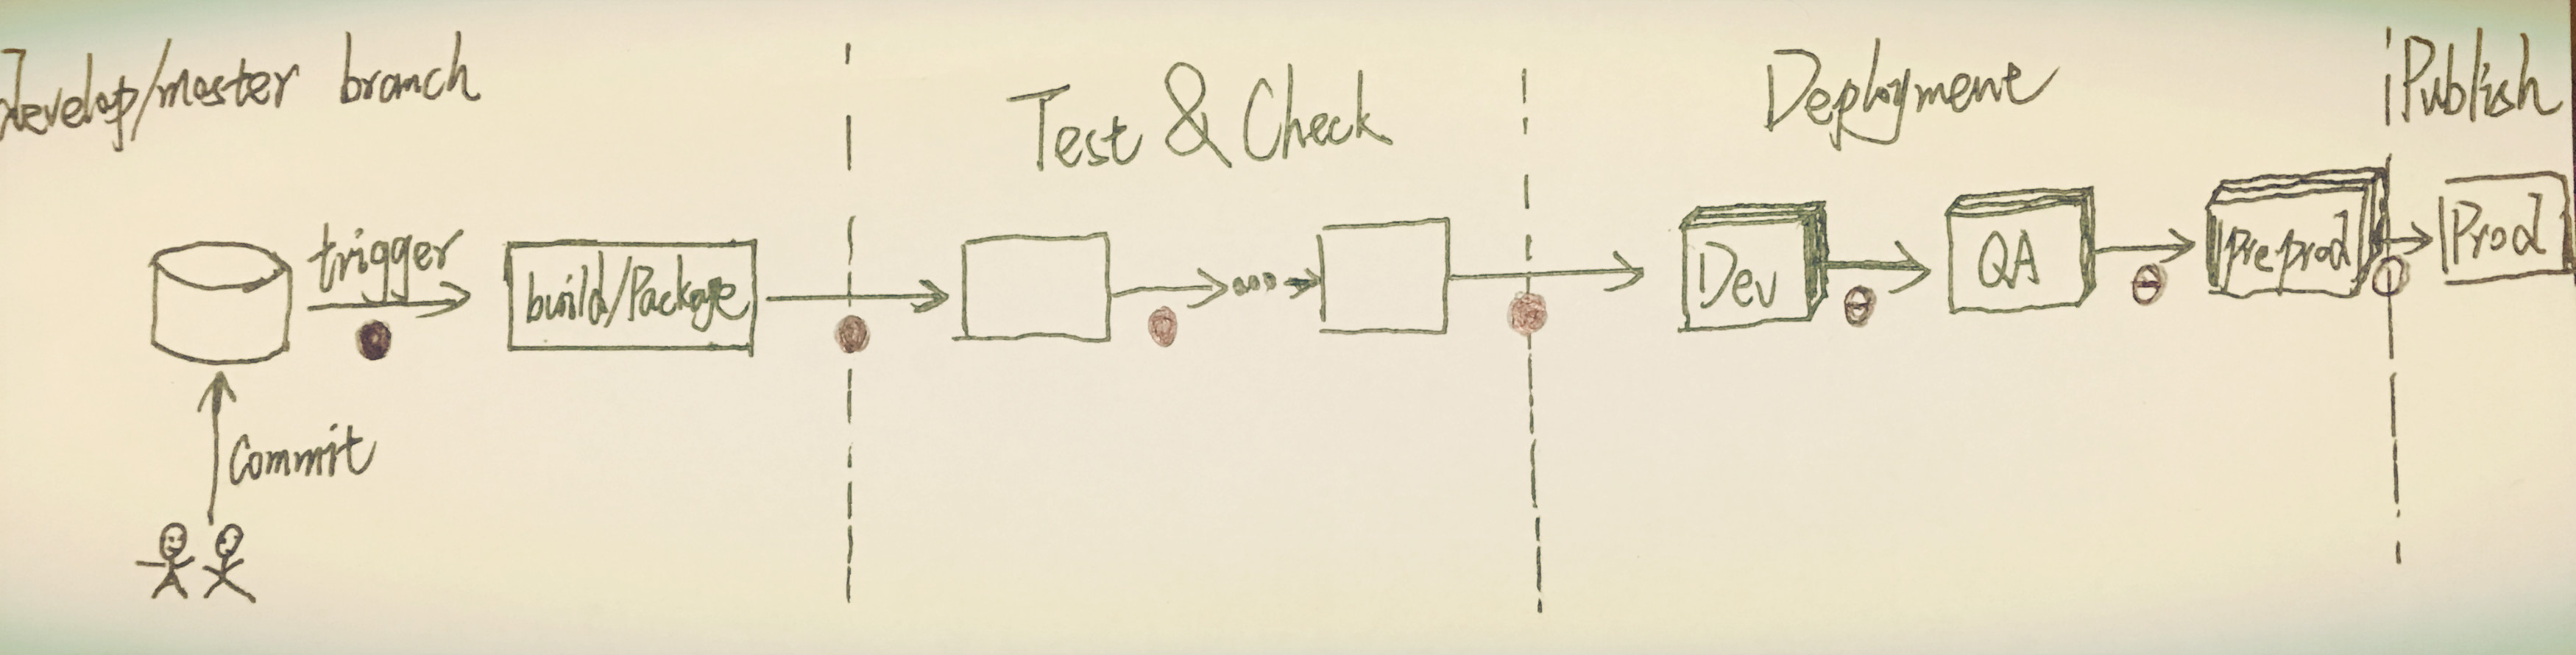 develop/master branch
Test & Check
Deployment
Publish
trigger
build/Package
Dev
QA
preprod
Prod
Commit